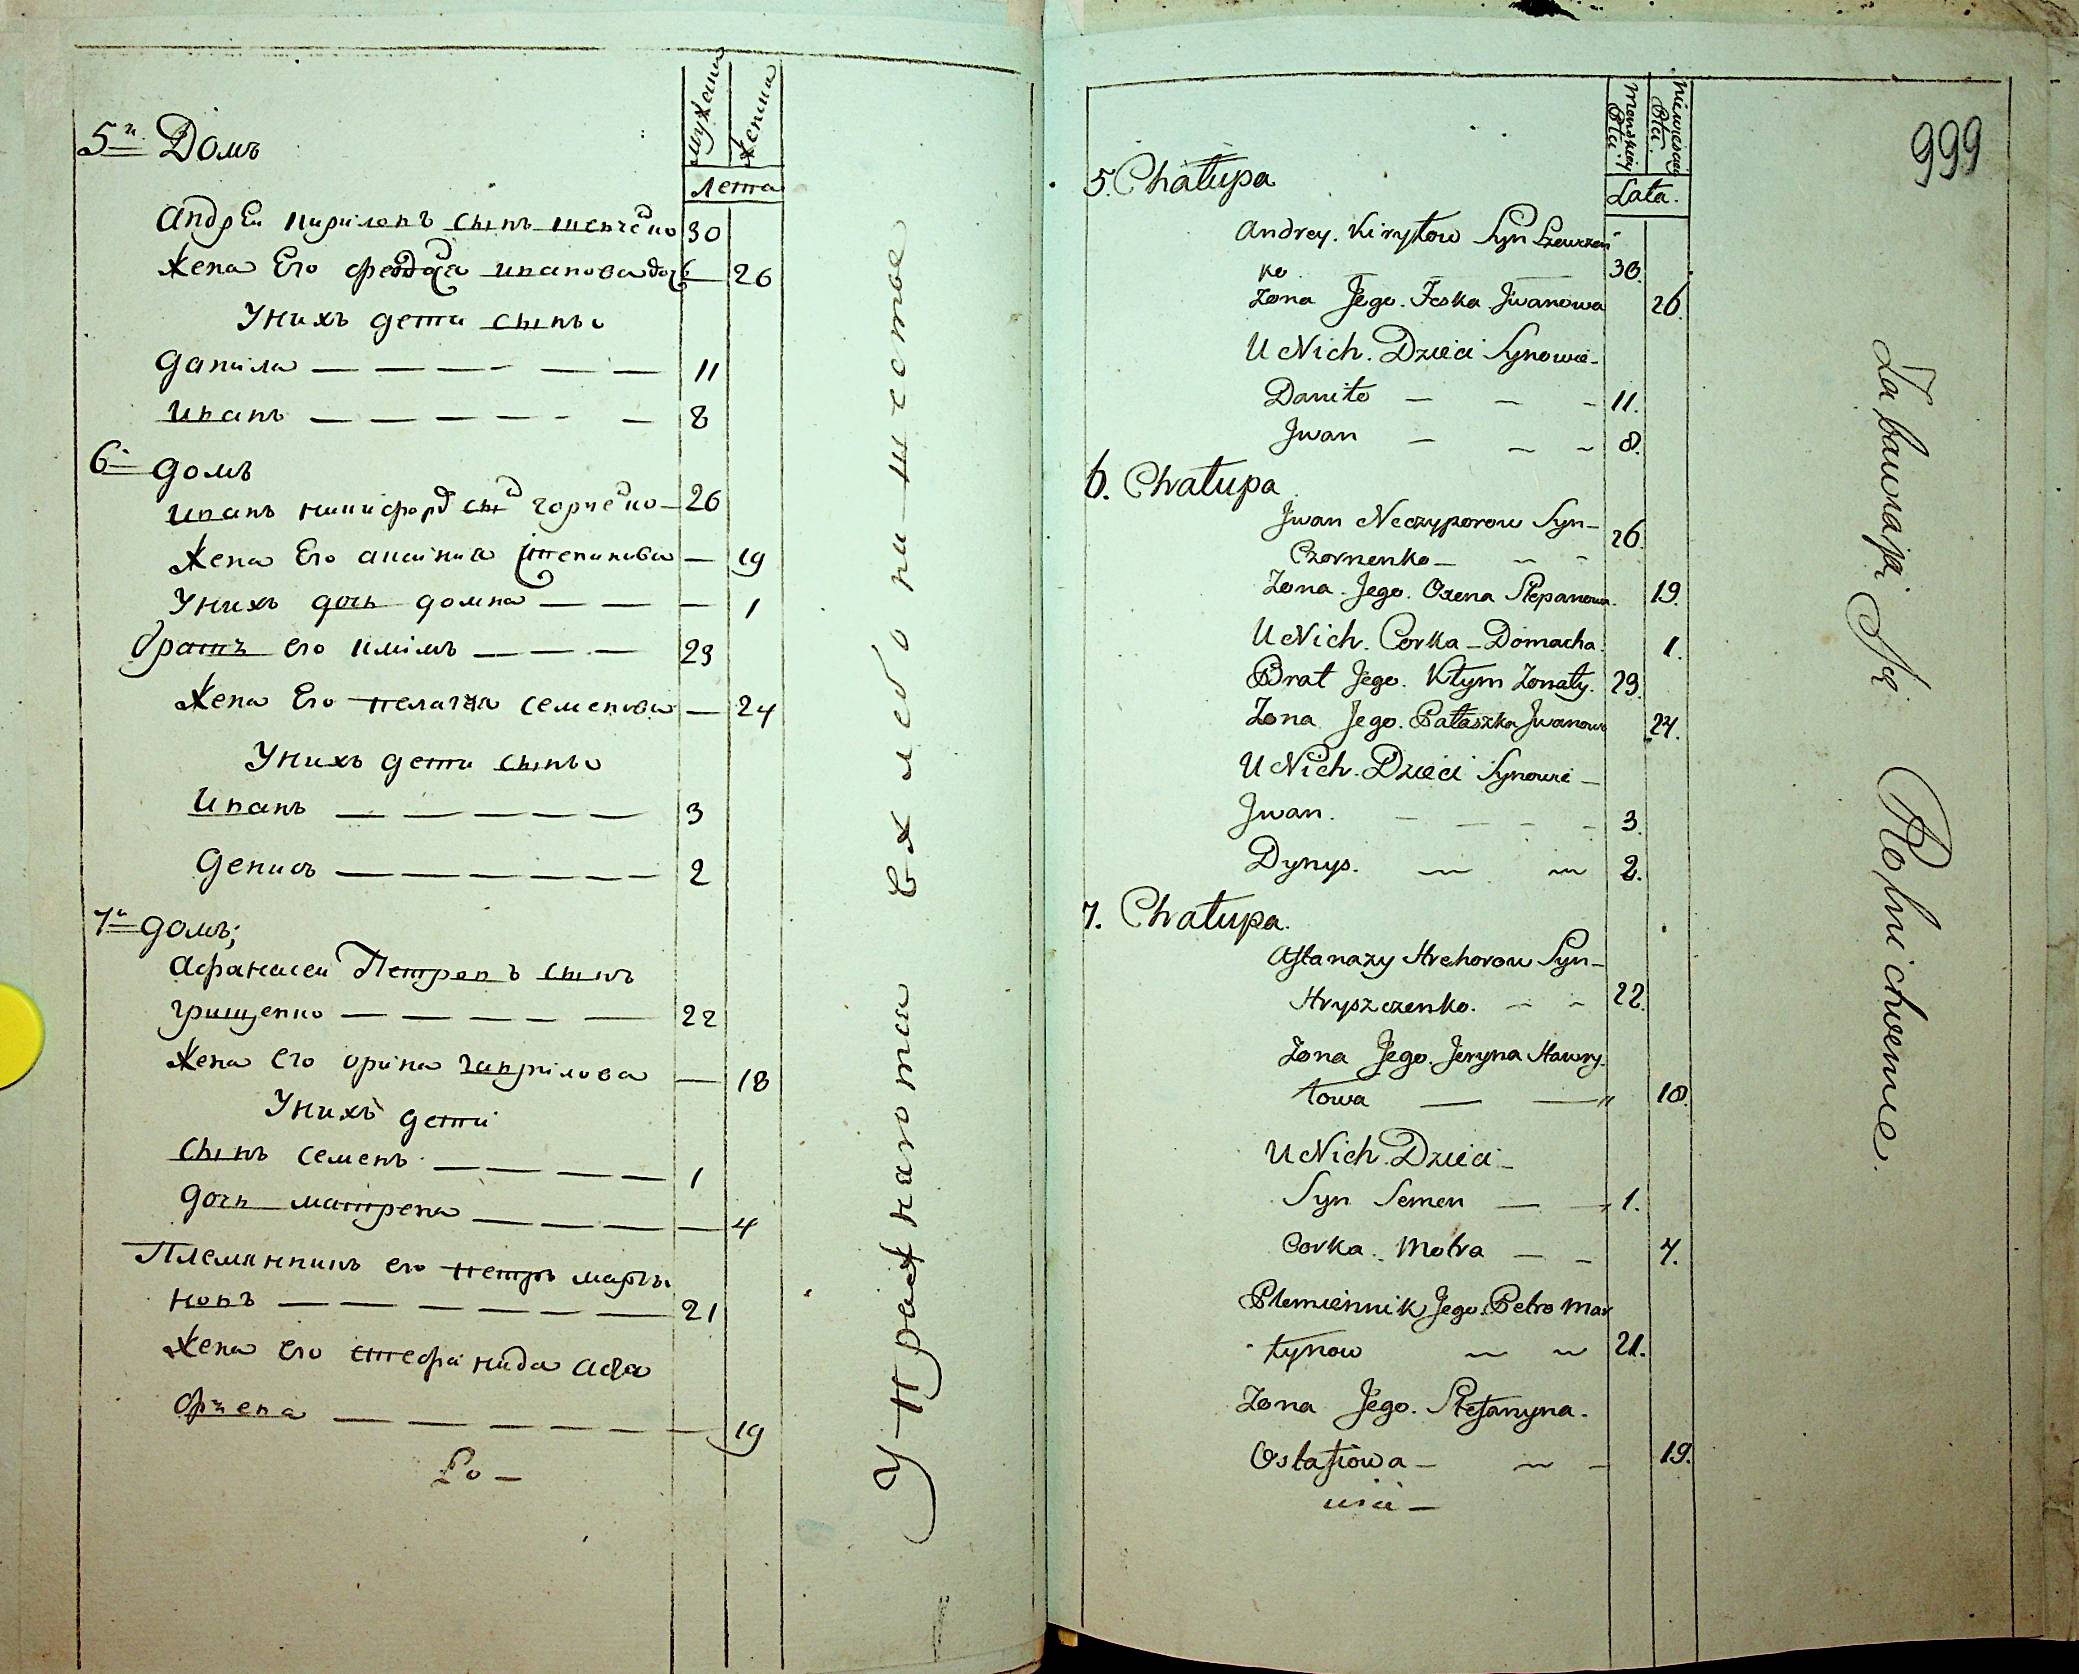 мужеска
женска
лета
5й Домъ
Андрей Кириловъ сынъ Шевченко 30
Жена Его Феодося Иванова дочь — 26
У нихъ дети сыны
Данила — — — — — — 11
Иванъ — — — — — — 8
6й домъ
Иванъ Никифоровъ сынъ Чорненко — 26
Жена Его Аксиния Степанова — 19
У нихъ дочь Домна — — — 1
братъ его Климъ — — — 29
Жена Его Пелагея Семенова — 24
У нихъ дети сыны
Иванъ — — — — — 3
Денисъ — — — — — — — 2
7й домъ;
Афанасей Петровъ сынъ
Грищенко — — — — — 22
Жена Его Орина Гаврилова — 18
У нихъ дети
сынъ Семенъ — — — — 1
дочь Матрена — — — — — 4
Племянникъ его Петръ Марты
новъ — — — — — — 21
Жена Его Стефанида
— — — — — — 19
Упражняются в хлебопашестве
999
Męskiey Płci.
Niewiesciey Płci.
Lata.
5. Chałupa
Andrey. Kiryłow Syn Szewczen
ko 30.
Zona Jego. Feska Jwanowa 26.
U Nich. Dzieci Synowie –
Daniło — — – 11.
Jwan — — – 8.
6. Chałupa
Jwan Neczyporow Syn –
Czornenko – — – 26.
Zona. Jego. Oxena Stepanowa. 19.
U Nich. Corka – Domacha. 1.
Brat Jego. Kłym Zonaty. 29.
Zona Jego. Pałaszka Jwanowa 24.
U Nich. Dzieci Synowie –
Jwan. — — — – 3.
Dynys. — — 2.
7. Chałupa.
Aftanazy Hrehorow Syn –
Hryszczenko. — – 22.
Zona Jego. Jeryna Hawry-
łowa — — 18.
U Nich. Dzieci –
Syn Semen — — 1.
Corka. Motra — – 4.
Plemiennik Jego. Petro Mar
tynow — — 21.
Zona Jego. Stefanyna.
Ostafiowa – — – 19.
Zabawiaią Się Rolnictwem